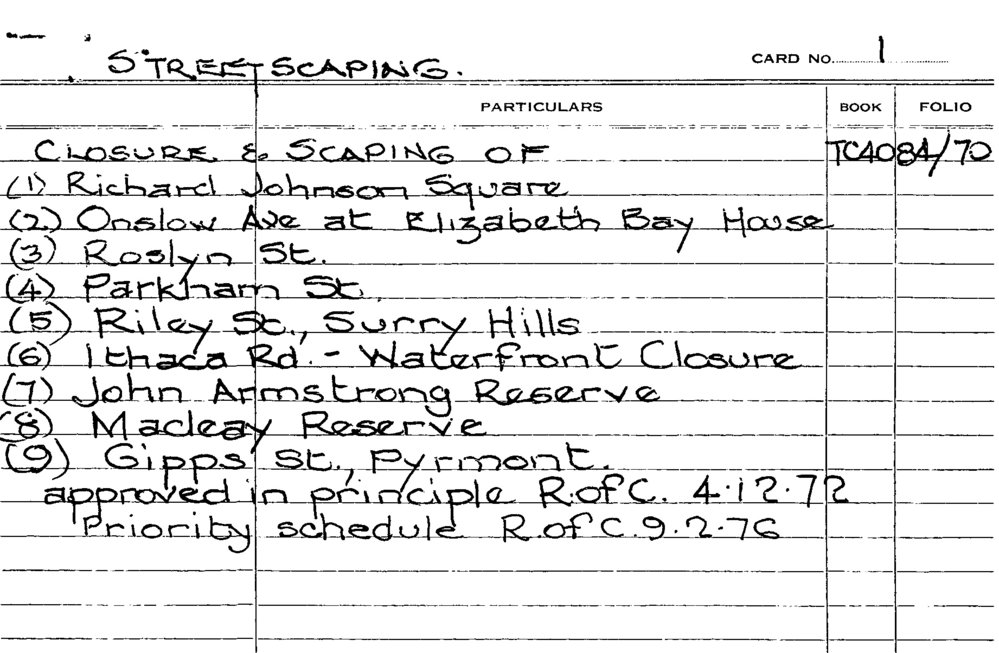 STREETSCAPING.
CARD No. 1
PARTICULARS BOOK FOLIO
CLOSURE & SCAPING OF TC4084/70
(1) Richard Johnson Square
(2) Onslow Ave at Elizabeth Bay House
(3) Roslyn St.
(4) Parkham St.
(5) Riley St., Surry Hills
(6) Ithaca Rd. - Waterfront Closure
(7) John Armstrong Reserve
(8) Macleay Reserve
(9) Gipps St., Pyrmont.
approved in principle R.of C. 4.12.72
Priority schedule R.of C. 9.2.76